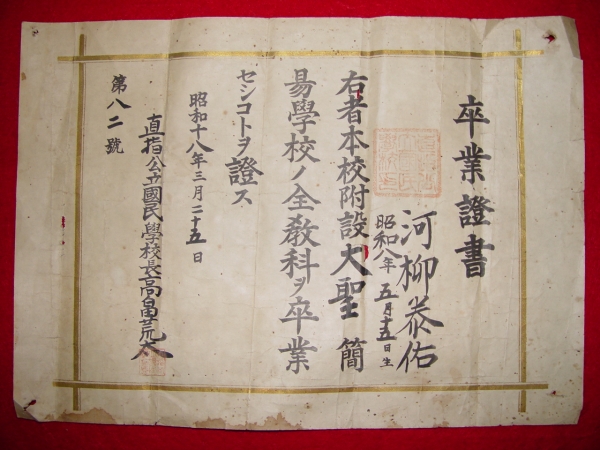 卒業證書
河柳泰佑
昭和八年五月十五日生
右者本校附設大聖簡
易學校ノ全教科ヲ卒業
セシコトヲ證ス
昭和十八年三月二十五日
直指公立國民學校長高畠荒太
第八二號